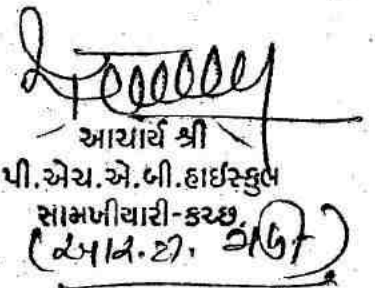 આચાર્ય શ્રી
પી.એચ.એ.બી.હાઇસ્કુલ
સામખીયારી-કચ્છ.
(આર.ટી.